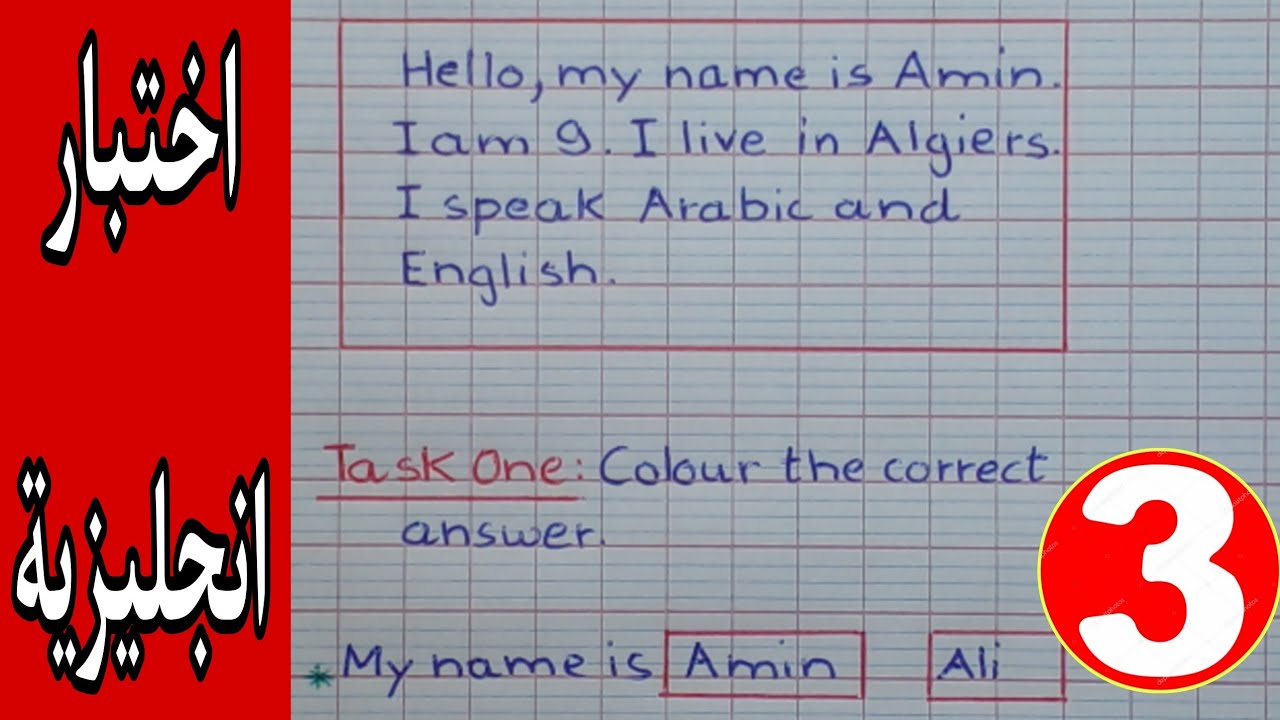 اختبار
انجليزية
Hello, my name is Amin.
I am 9. I live in Algiers.
I speak Arabic and
English.
Task One: Colour the correct
answer.
* My name is Amin Ali
3